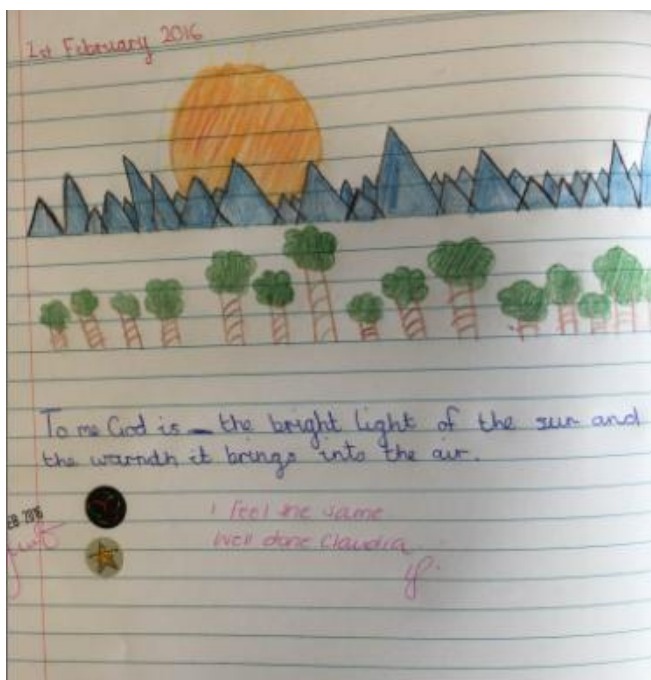 1st February 2016
To me God is – the bright light of the sun and
the warmth it brings into the air.
I feel the same
Well done Claudia